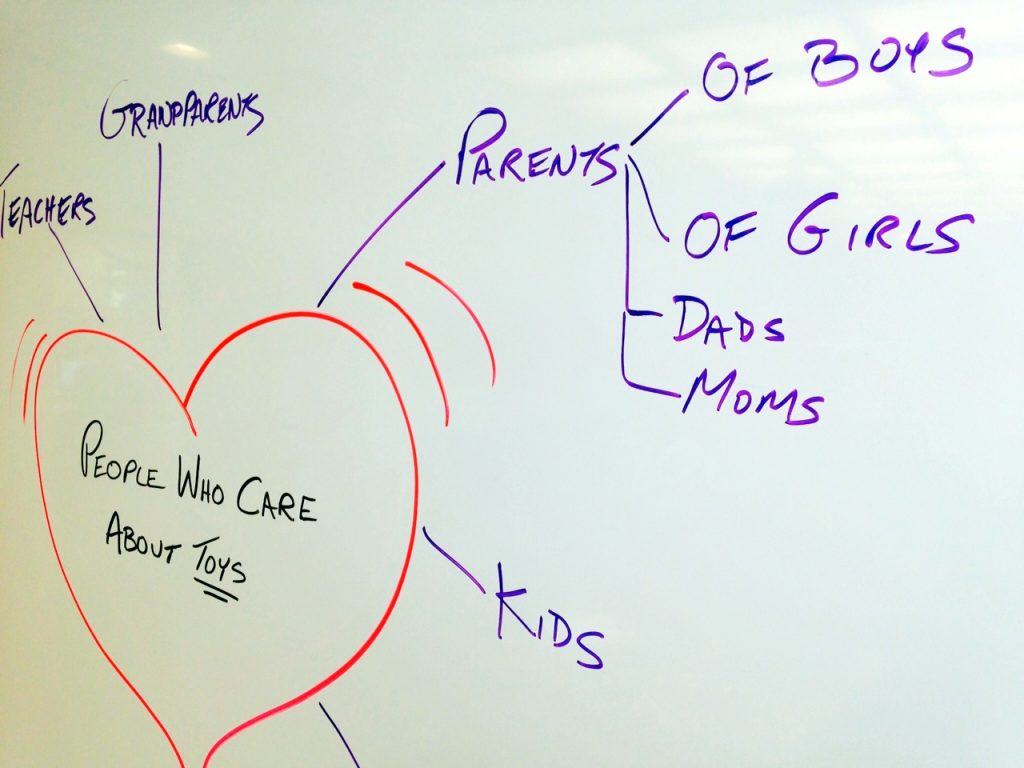 GRANDPARENTS
TEACHERS
PARENTS
OF BOYS
OF GIRLS
DADS
MOMS
PEOPLE WHO CARE
ABOUT TOYS
KIDS